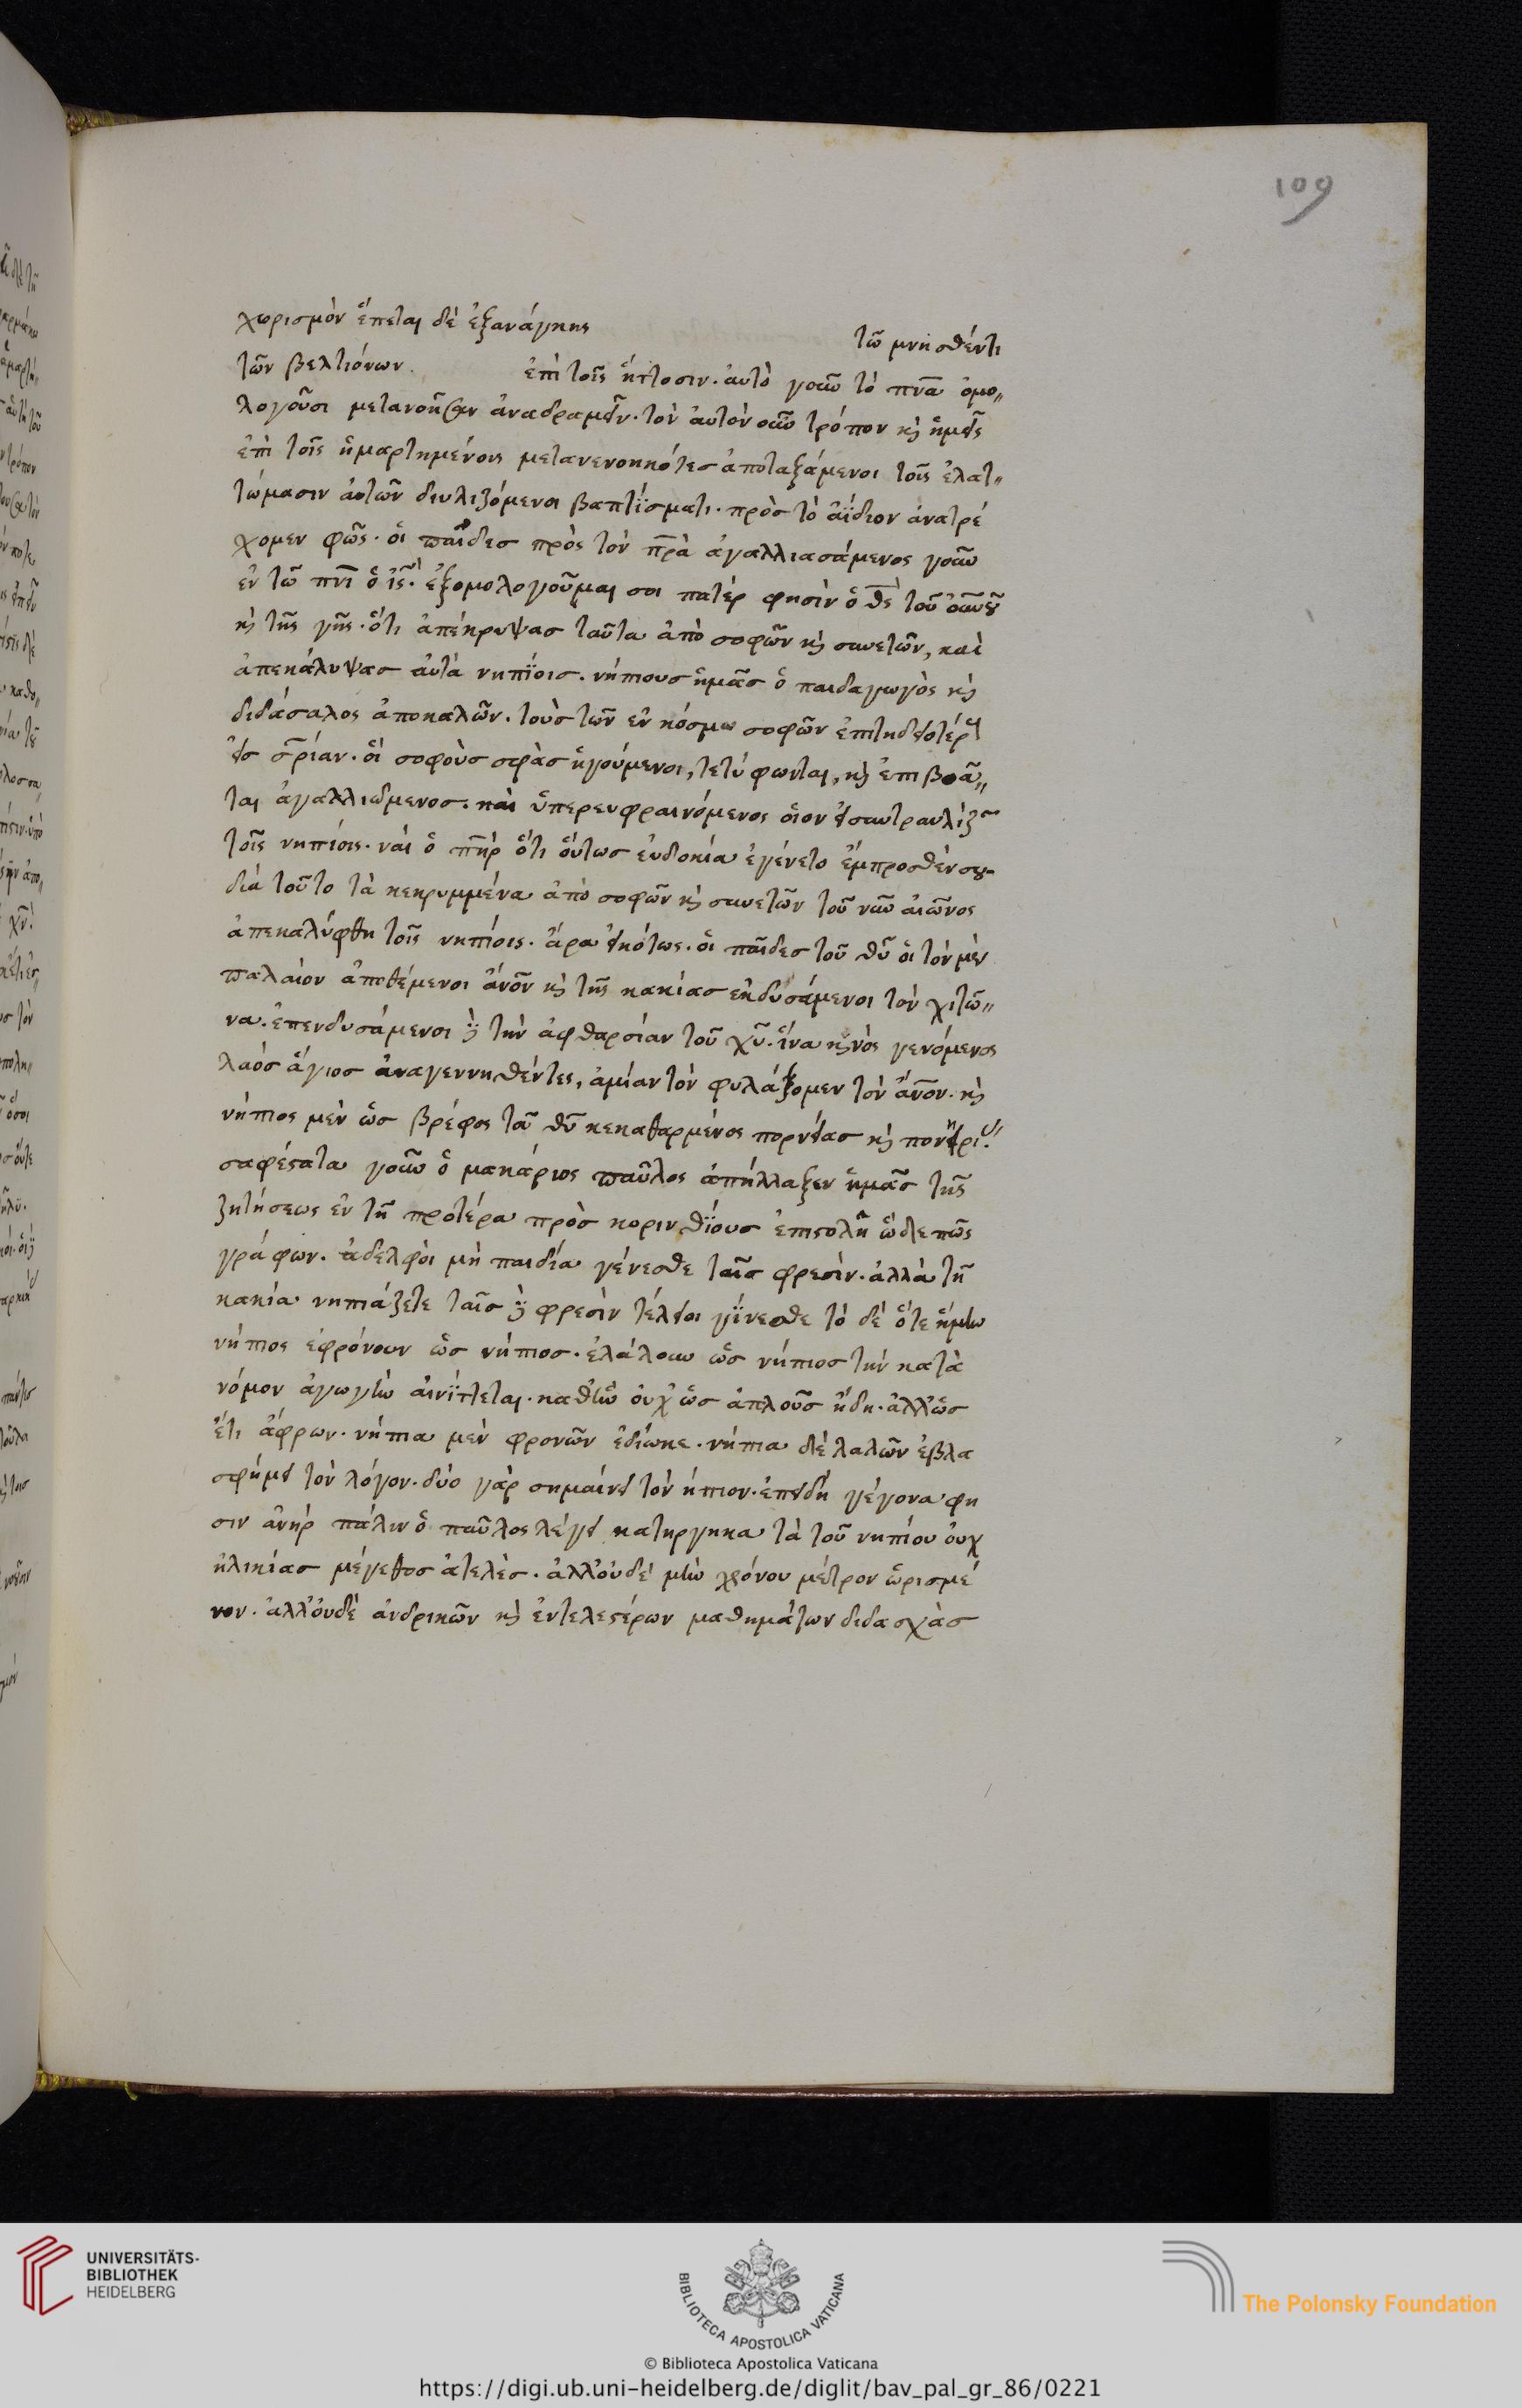 109
χωρισμὸν ἕπεται δὲ ἐξανάγκης τῶ μνησθέντι
τῶν βελτιόνων. ἐπὶ τοῖς ἥττοσιν. ἀυτὸ γοῦν τὸ πνᾶ ὁμο„
λογοῦσι μετανοῆσαν ἀναδραμεῖν. τὸν ἀυτὸν οὖν τρόπον κὴ ἡμεῖς
ἐπὶ τοῖς ἡμαρτημένοις μετανενοηκότες ἀποταξάμενοι τοῖς ἐλατ„
τώμασιν ἀυτῶν διυλιζόμενοι βαπτίσματι. πρὸς τὸ ἀΐδιον ἀνατρέ
χομεν φῶς. ὁι παῖδες πρὸς τὸν πρᾶ ἀγαλλιασάμενος γοῦν
ἐν τῶ πνι ὁ ις. ἐξομολογοῦμαι σοι πατέρ φησὶν ὁ θς τοῦ οὐνοῦ
κὴ τῆς γῆς. ὅτι ἀπέκρυψας ταῦτα ἀπὸ σοφῶν κὴ συνετῶν, καὶ
ἀπεκάλυψας ἀυτὰ νηπίοις. νήπιους ἡμᾶς ὁ παιδαγωγὸς κὴ
διδάσαλος ἀποκαλῶν. τοὺς τῶν ἐν κόσμω σοφῶν ἐπιτηδειοτέρους
εἰς σρίαν. ὁι σοφοὺς σφὰς ἡγούμενοι, τετύφωνται, κὴ ἐπιβοᾶ„
ται ἀγαλλιώμενος. καὶ ὑπερευφραινόμενος ὁιον εἰ συντραυλίζων
τοῖς νηπίοις. ναὶ ὁ πηρ ὅτι ὅυτως ἐυδοκία ἐγένετο ἔμπροσθέν σου.
διὰ τοῦτο τὰ κεκρυμμένα ἀπὸ σοφῶν κὴ συνετῶν τοῦ νῦν ἀιῶνος
ἀπεκαλύφθη τοῖς νηπίοις. ἄρα εἰκότως. ὁι παῖδες τοῦ θυ ὁι τὸν μὲν
παλαιὸν ἀποθέμενοι ἄνον κὴ τῆς κακίας ἐκδυσάμενοι τὸν χιτῶ„
να. ἐπενδυσάμενοι δὲ τὴν ἀφθαρσίαν τοῦ χυ. ἵνα καινὸς γενόμενος
λαὸς ἅγιος ἀναγεννηθέντες, ἀμίαντον φυλάξομεν τὸν ἄνον. κὴ
νήπιος μὲν ὡς βρέφος τοῦ θυ κεκαθαρμένος πορνείας κὴ πονηρίας.
σαφέστατα γοῦν ὁ μακάριος παῦλος ἀπήλλαξεν ἡμᾶς τῆς
ζητήσεως ἐν τῆ προτέρα πρὸς κορινθίους ἐπιστολῆ ὧδε πῶς
γράφων. ἀδελφὸι μὴ παιδία γένεσθε ταῖς φρεσὶν. ἀλλὰ τῆ
κακία νηπιάζετε ταῖς δὲ φρεσὶν τέλειοι γίνεσθε τὸ δὲ ὅτε ἤμην
νήπιος ἐφρόνουν ὡς νήπιος. ἐλάλουν ὡς νήπιος τὴν κατὰ
νόμον ἀγωγὴν ἀινίττεται. καθ᾽ ἣν ὀυχ᾽ ὡς ἁπλοῦς ἤδη. ἀλλ᾽ ὡς
ἔτι ἄφρων. νήπια μὲν φρονῶν ἐδίωκε. νήπια δὲ λαλῶν ἐβλα
σφήμει τὸν λόγον. δύο γὰρ σημαίνει τὸν ήπιον. ἐπειδὴ γέγονα φη
σιν ἀνήρ πάλιν ὁ παῦλος λέγει κατηργηκα τὰ τοῦ νηπίου ὀυχ
ἡλικίας μέγεθος ἀτελὲς. ἀλλ᾽ ὀυδὲ μὴν χρόνου μέτρον ὡρισμέ
νον. ἀλλ᾽ ὀυδὲ ἀνδρικῶν κὴ ἐντελεστέρων μαθημάτων διδασχὰς
UNIVERSITÄTS-
BIBLIOTHEK
HEIDELBERG
BIBLIOTECA APOSTOLICA VATICANA
The Polonsky Foundation
© Biblioteca Apostolica Vaticana
https://digi.ub.uni-heidelberg.de/diglit/bav_pal_gr_86/0221